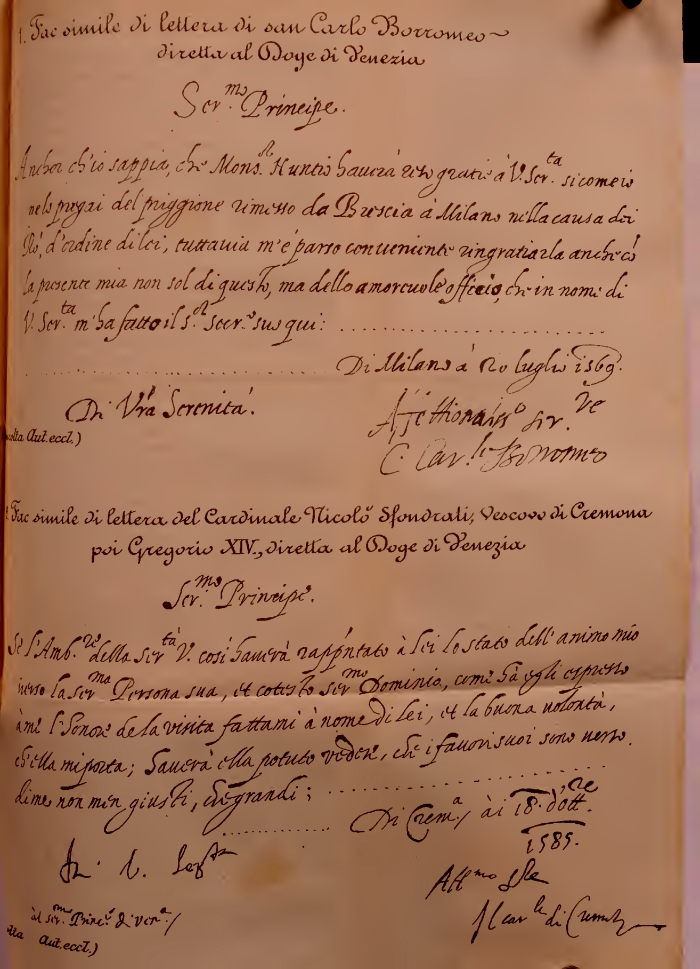 1. Fac simile di lettera di san Carlo Borromeo
diretta al Doge di Venezia
Ser.mo Principe.
Anchor ch'io sappia, che Mons.or Huntio hauerà reso gratie à V. Ser.ta si come io
nelo pregai del priggione rimesso da Brescia à Milano nella causa dei
d'ordine di lei, tuttauia m'è parso conueniente ringratiarla anche cõ
la presente mia non sol di questo, ma dello amoreuole officio, che in nome di
V. Ser.ta m'ha fatto il s.or secr.o suo qui: ....................
.................... Di Milano à 20 luglio 1569.
Di Vrã Serenita.
Affettionatiss.o ser.re
C. Car.le Borromeo
Aut. eccl.)
Fac simile di lettera del Cardinale Nicolò Sfondrati, Vescovo di Cremona
poi Gregorio XIV, diretta al Doge di Venezia
Ser.mo Principe.
Se l'Amb.re della Ser.tà V. così hauerà rapp̃ntato à lei lo stato dell'animo mio
uerso la ser.ma Persona sua, et cotesto ser.mo Dominio, come hà egli espresso
à me l'honore de la visita fattami à nome di lei, et la buona volontà,
ch'ella mi porta; hauerà ella potuto vedere, che i fauori suoi sono verso
di me non men giusti, che grandi; ....................
.................... Di Crem.a / ài 18. d'ott.re
1585.
Aff.mo
Il car.le di Cremona
al ser.mo Princ.e di Ven.a /
Aut. eccl.)